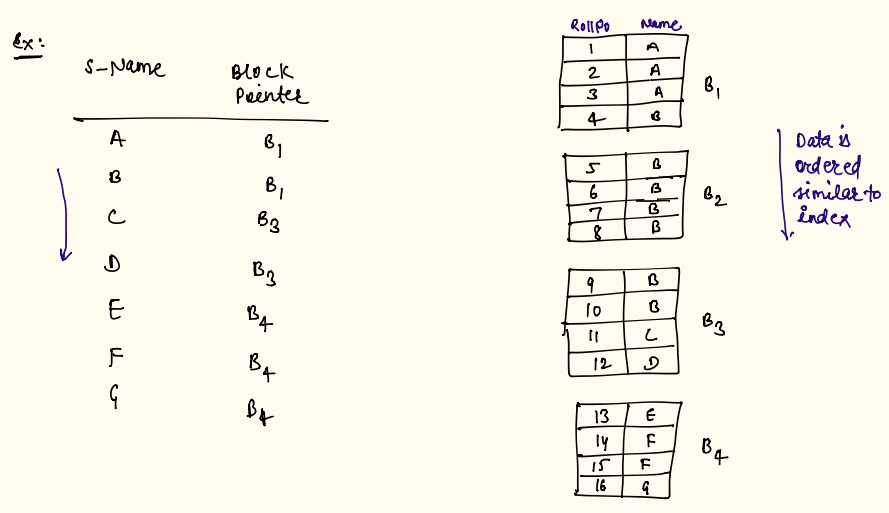 Ex:
S-Name Block Pointer
A B1
B B1
C B3
D B3
E B4
F B4
G B4
RollNo Name
1 A
2 A
3 A
4 B
B1
5 B
6 B
7 B
8 B
B2
9 B
10 B
11 C
12 D
B3
13 E
14 F
15 F
16 G
B4
Data is
ordered
similar to
index